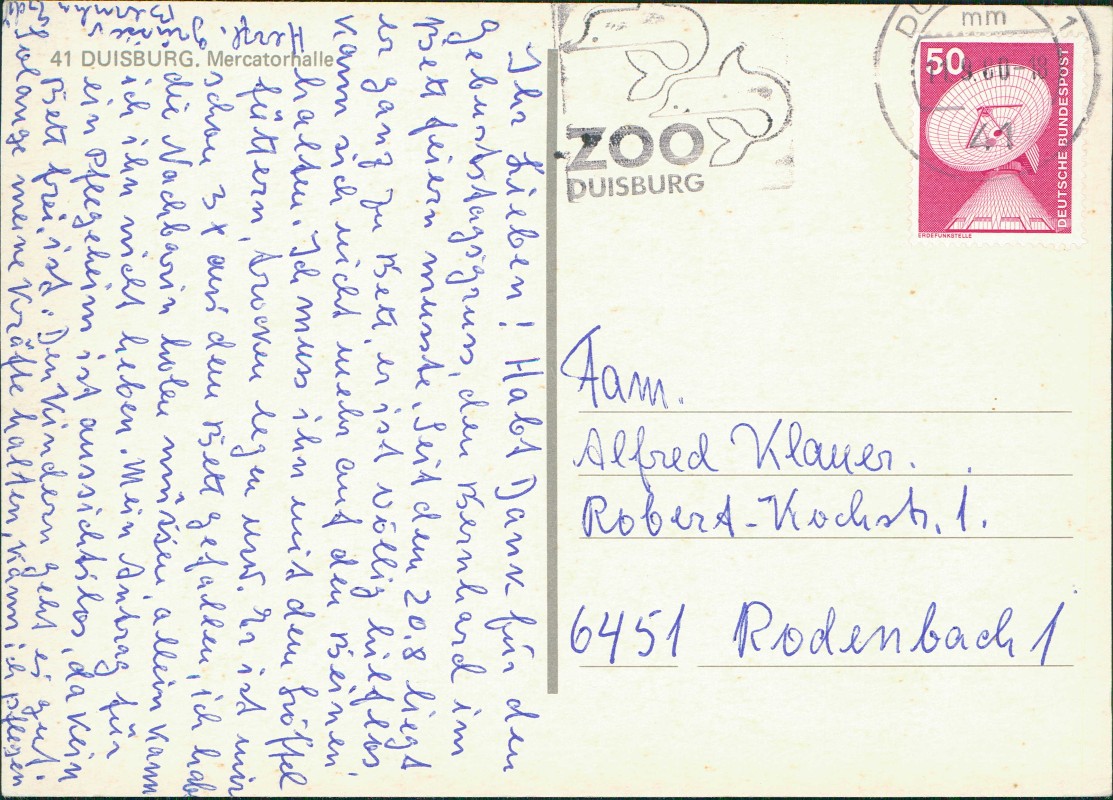 41 DUISBURG. Mercatorhalle
Ihr Lieben! Habt Dank für den
Geburtstagsgruss, den Bernhard im
Bett feiern musste. Seit dem 20.8 liegt
er ganz zu Bett, er ist völlig hilflos
kann sich nicht mehr auf den Beinen
halten. Ich muss ihn mit dem Löffel
füttern, trocken legen usw. Er ist mir
schon 3x aus dem Bett gefallen, ich habe
die Nachbarin holen müssen allein kann
ich ihn nicht heben. Mein Antrag für
ein Pflegeheim ist aussichtlos, da kein
Bett frei ist. Den Kindern geht es gut.
Solange meine Kräfte halten, kann ich pflegen
Herzl. Grüsse
ZOO
DUISBURG
DU
mm
1
-18
41
50
DEUTSCHE BUNDESPOST
ERDEFUNKSTELLE
Fam.
Alfred Klauer.
Robert-Kochstr. 1.
6451 Rodenbach 1